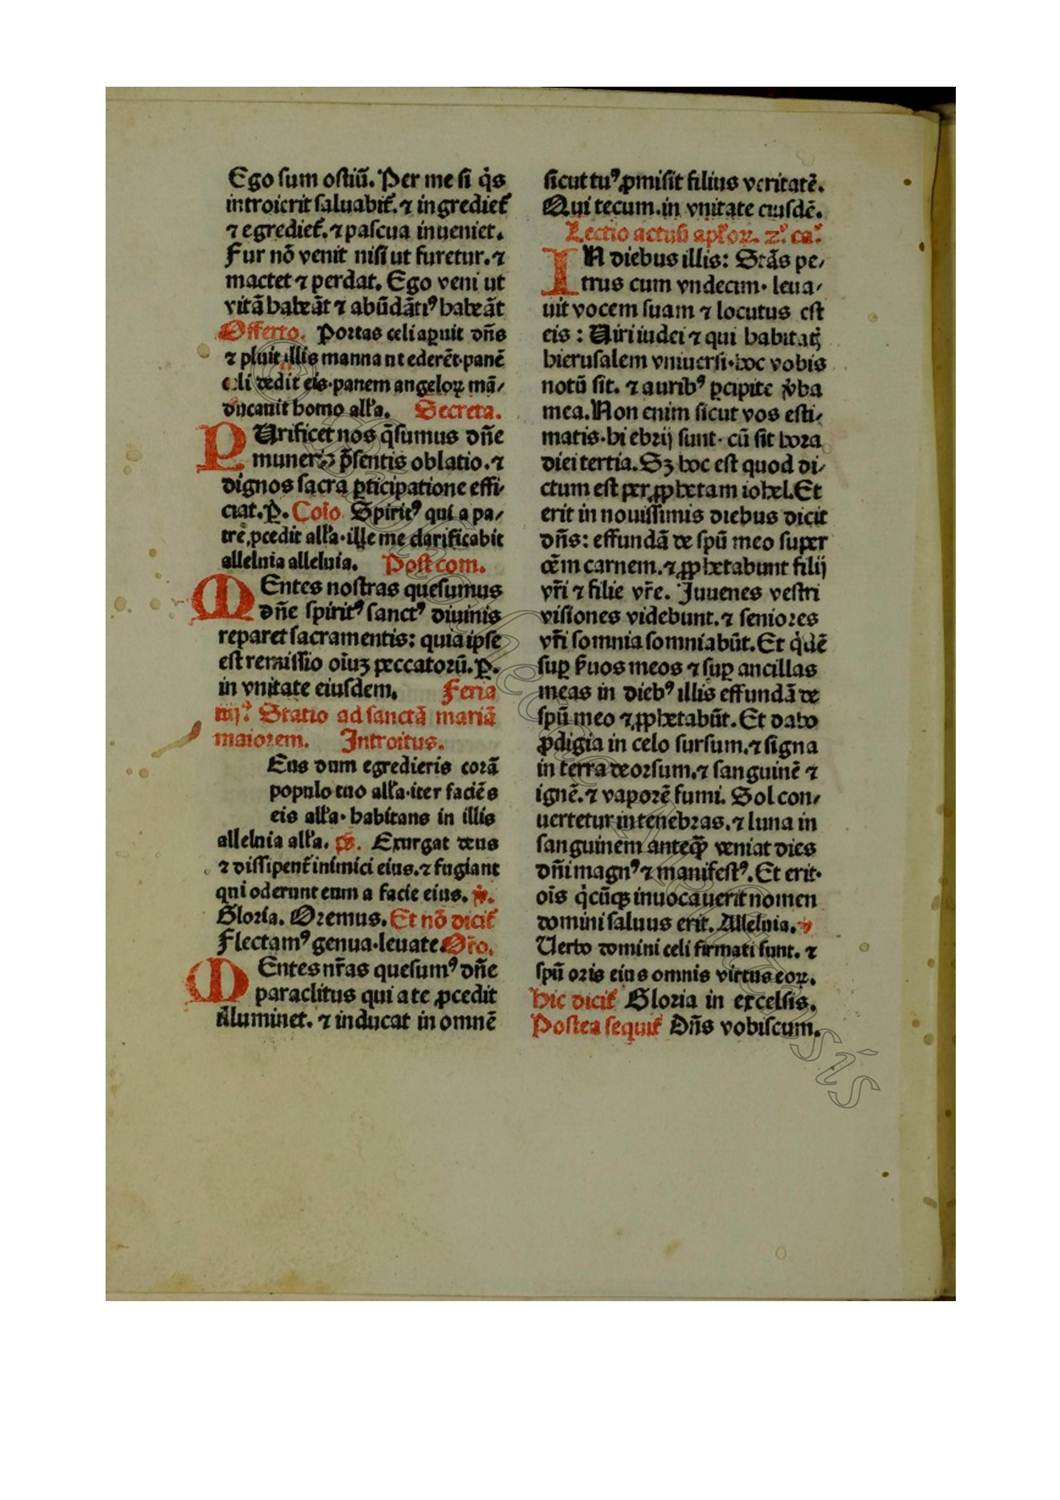 Ego ſum oſtiū. Per me ſi q̄s
introierit ſaluabit̉. ⁊ ingrediet̉
⁊ egrediet̉. ⁊ paſcua inueniet.
Fur nō venit niſi ut furetur. ⁊
mactet ⁊ perdat. Ego veni ut
vitā habeāt ⁊ abūdātiꝰ habeāt
Offerto. Portas celi aꝑuit dn̄s
⁊ pluit illis manna ut ederēt·panē
celi dedit eis·panem angeloꝝ mā⸗
ducauit homo all'a. Secreta.
PUrificet nos q̄ſumus dn̄e
muneris p̄ſentis oblatio. ⁊
dignos ſacra ꝑticipatione effi⸗
ciat. P. Coīo Spiritꝰ qui a pa⸗
tre ꝓcedit all'a·ille me clarificabit
alleluia alleluia. Poſtcom.
MEntes noſtras queſumus
dn̄e ſpiritꝰ ſanctꝰ diuinis
reparet ſacramentis: quia ipſe
eſt remiſſio oīuꝫ peccatorū. P.
in vnitate eiuſdem. Feria
iiij. Statio ad ſanctā mariā
maiorem. Introitus.
Eus dum egredieris corā
populo tuo all'a·iter faciēs
eis all'a·habitans in illis
alleluia all'a. ps. Exurgat deus
⁊ diſſipent̉ inimici eius. ⁊ fugiant
qui oderunt eum a facie eius. ℣.
Gloria. Oremus. Et nō dicit̉
Flectamꝰ genua·leuate Or̄o.
MEntes nr̄as queſumꝰ dn̄e
paraclitus qui a te ꝓcedit
illuminet. ⁊ inducat in omnē
ſicut tuꝰ ꝓmiſit filius veritatē.
Qui tecum. in vnitate eiuſdē.
Lectio actuū apl'oꝝ. 2. ca.
IN diebus illis: Stās pe⸗
trus cum vndecim· leua⸗
uit vocem ſuam ⁊ locutus eſt
eis: Uiri iudei ⁊ qui habitatꝭ
hieruſalem vniuerſi·hoc vobis
notū ſit. ⁊ auribꝰ ꝑcipite v̄ba
mea. Non enim ſicut vos eſti⸗
matis·hi ebrij ſunt· cū ſit hora
diei tertia. Sꝫ hoc eſt quod di⸗
ctum eſt per ꝓphetam iohel. Et
erit in nouiſſimis diebus dicit
dn̄s: effundā de ſpū meo ſuper
oēm carnem. ⁊ ꝓphetabunt filij
vr̄i ⁊ filie vr̄e. Juuenes veſtri
viſiones videbunt. ⁊ ſeniores
vr̄i ſomnia ſomniabūt. Et q̇dē
ſuꝑ ẜuos meos ⁊ ſuꝑ ancillas
meas in diebꝰ illis effundā de
ſpū meo ⁊ ꝓphetabūt. Et dabo
ꝓdigia in celo ſurſum. ⁊ ſigna
in terra deorſum. ⁊ ſanguinē ⁊
ignē. ⁊ vaporē fumi. Sol con⸗
uertetur in tenebras. ⁊ luna in
ſanguinem anteq̄ꝫ veniat dies
dn̄i magnꝰ ⁊ manifeſtꝰ. Et erit·
oīs q̇cūqꝫ inuocauerit nomen
domini ſaluus erit. Alleluia. ℣
Uerbo domini celi firmati ſunt. ⁊
ſpū oris eius omnis virtus eoꝝ.
Hic dicit̉ Gloria in excelſis.
Poſtea ſequit̉ Dn̄s vobiſcum.